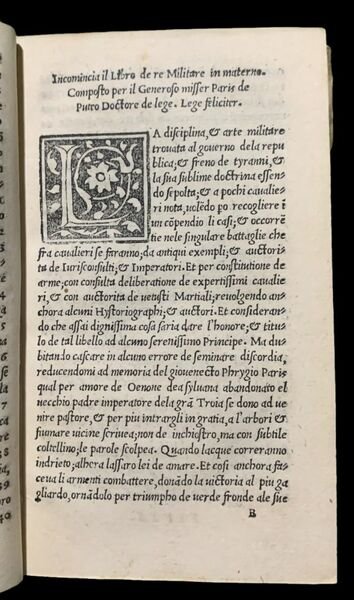 Incomincia il Libro de re Militare in materno.
Composto per il Generoso misser Paris de
Puteo Doctore de lege. Lege feliciter.
LA disciplina, & arte militare
trouata al gouerno dela repu
blica; & freno de tyranni, &
la sua sublime doctrina essen
do sepolta; & a pochi caualie
ri nota, uolēdo po recogliere ī
un cōpendio li casi; & occorrē
tie nele singulare battaglie che
fra caualieri se feranno; da antiqui exempli; & auctorita
de Iurisconsulti, & Imperatori. Et per constitutione de
arme; con consulta deliberatione de expertissimi cauali
eri, & con auctorita de uetusti Martiali; reuolgendo an
chora alcuni Hystoriographi; & auctori. Et consideran
do che assai dignissima cosa saria dare l'honore; & titu
lo de tal libello ad alcuno serenissimo Principe. Ma du
bitando cascare in alcuno errore de seminare discordia,
reducendomi ad memoria del giouenecto Phrygio Paris
qual per amore de Oenone dea syluana abandonato el
uecchio padre imperatore dela grā Troia se dono ad ue
nire pastore, & per piu intrargli in gratia, a l'arbori &
fiumare uicine scriuea; non de inchiostro, ma con subtile
coltellino; le parole scolpea. Quando lacque correranno
indrieto; alhera lassaro lei de amare. Et cosi anchora fa
cea li armenti combattere, donādo la uictoria al piu ga
gliardo, ornādolo per triumpho de uerde fronde ale sue
B